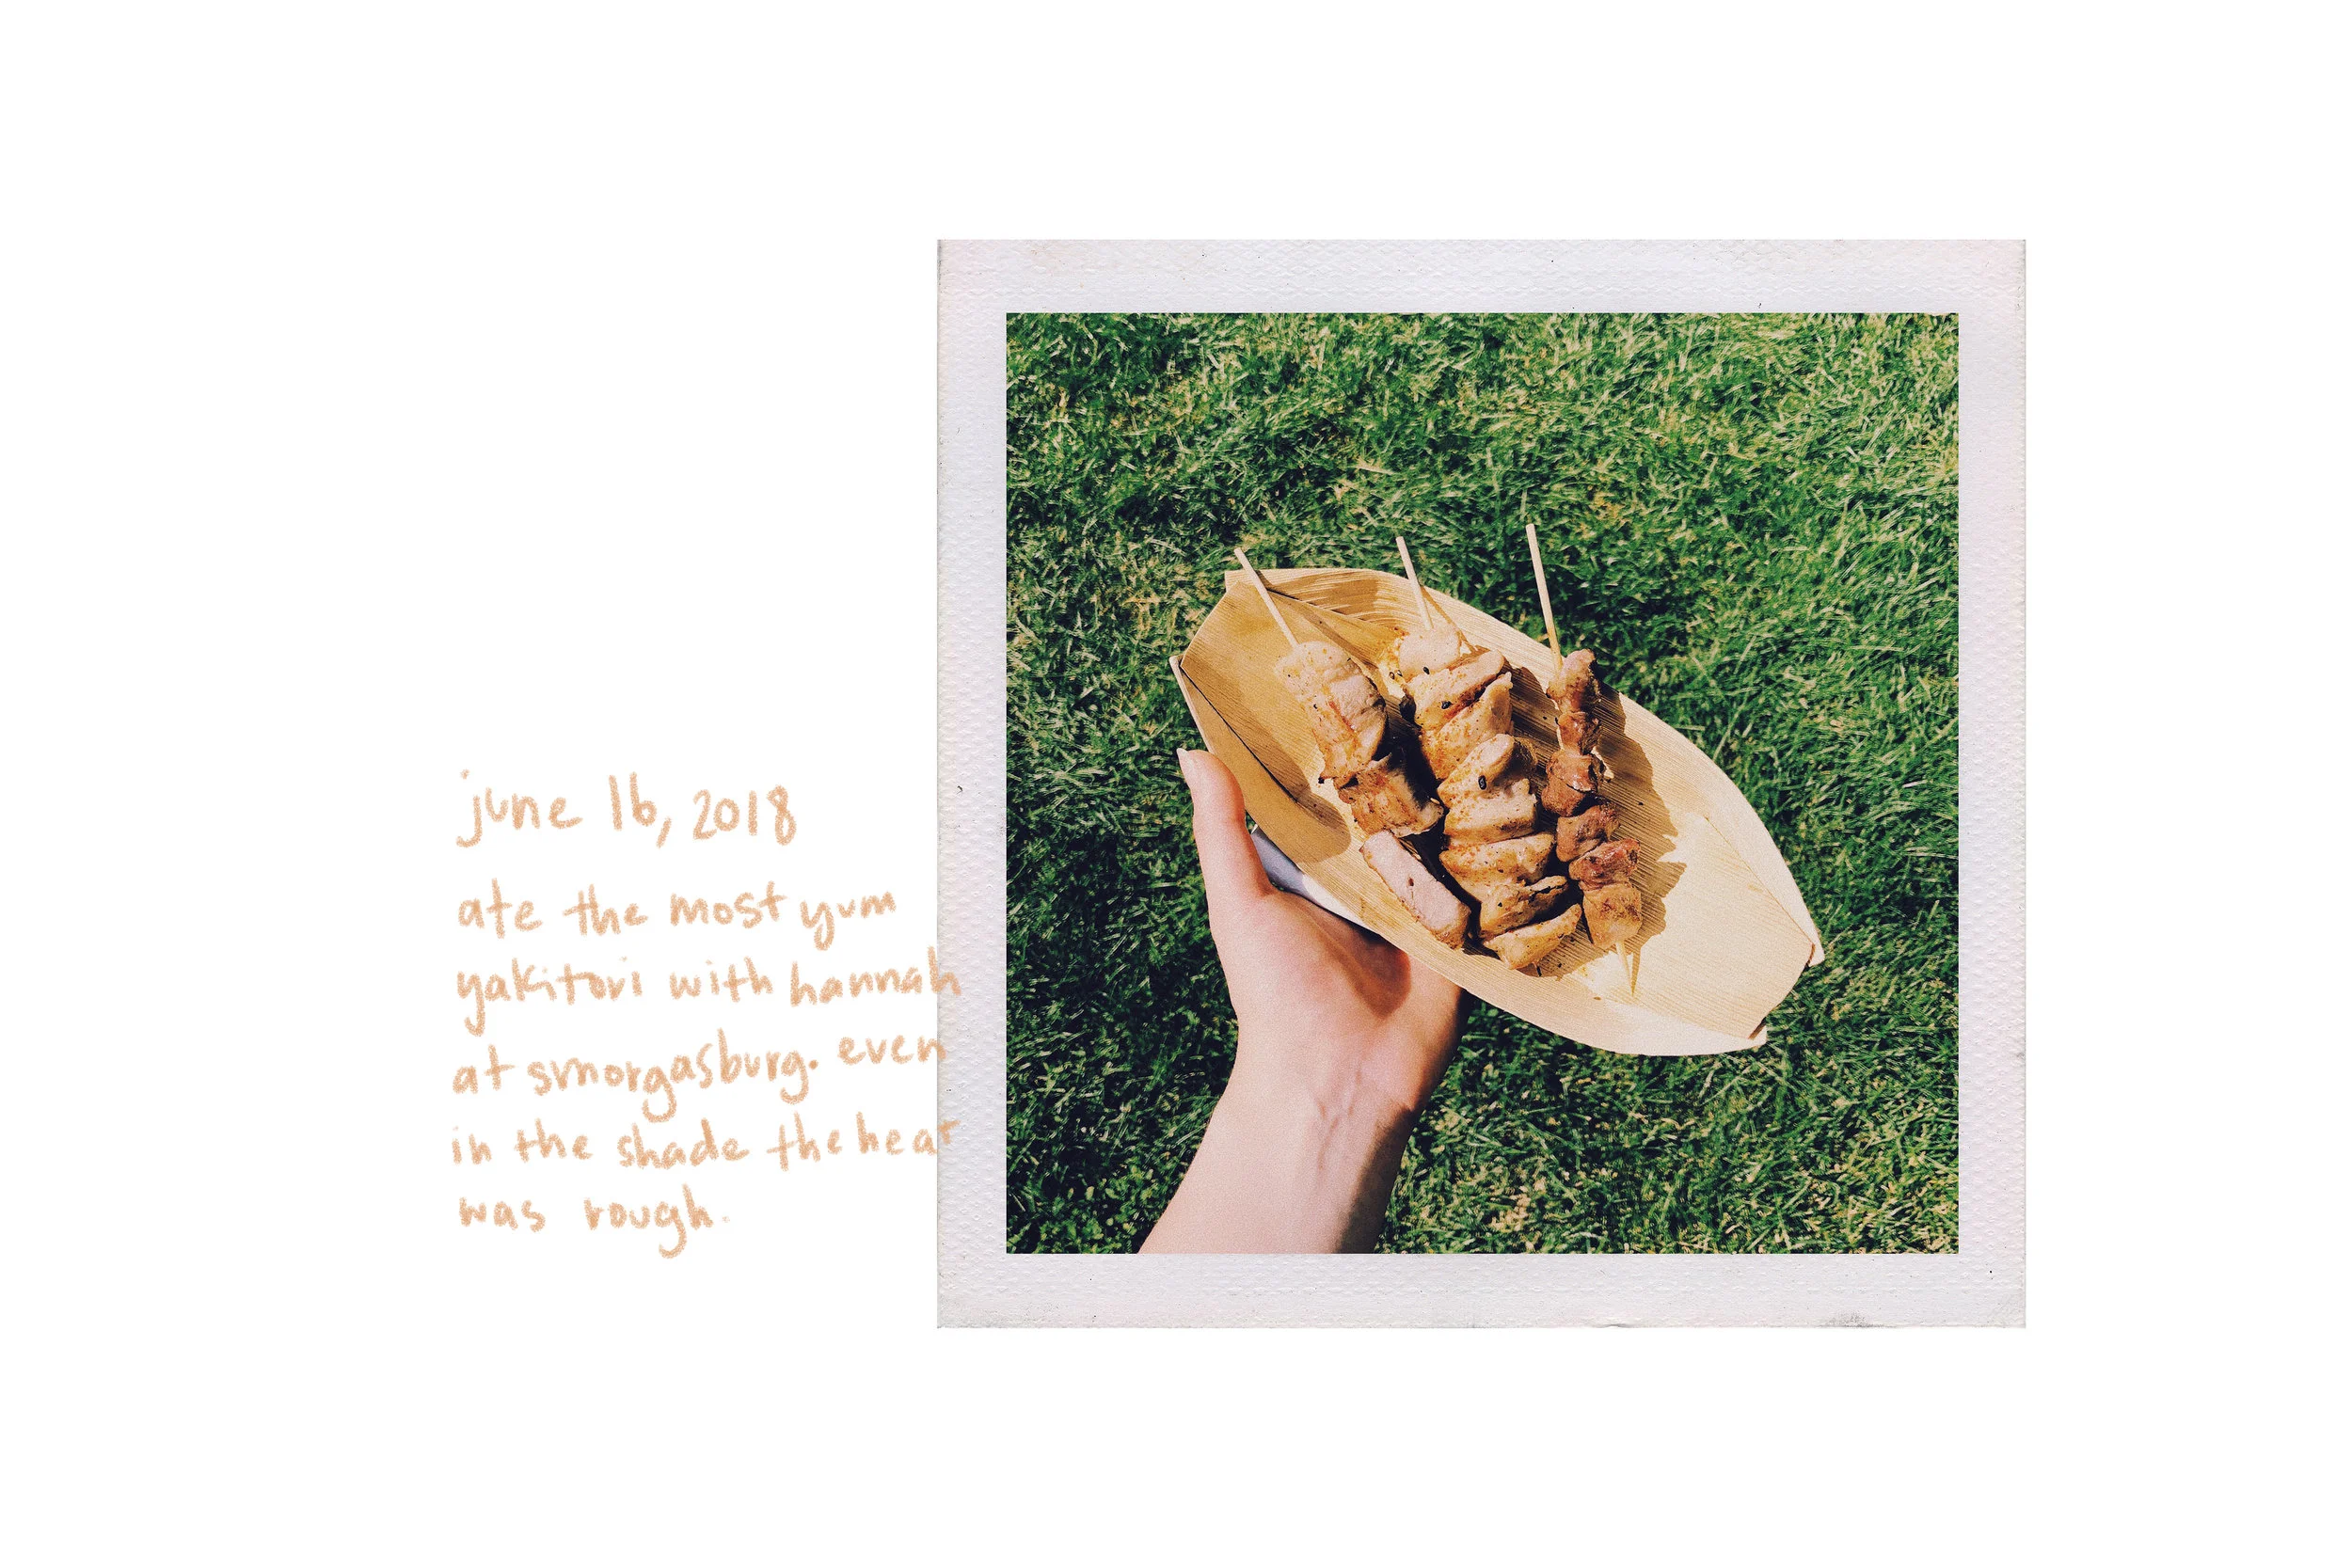 june 16, 2018
ate the most yum
yakitori with hannah
at smorgasburg. even
in the shade the heat
was rough.